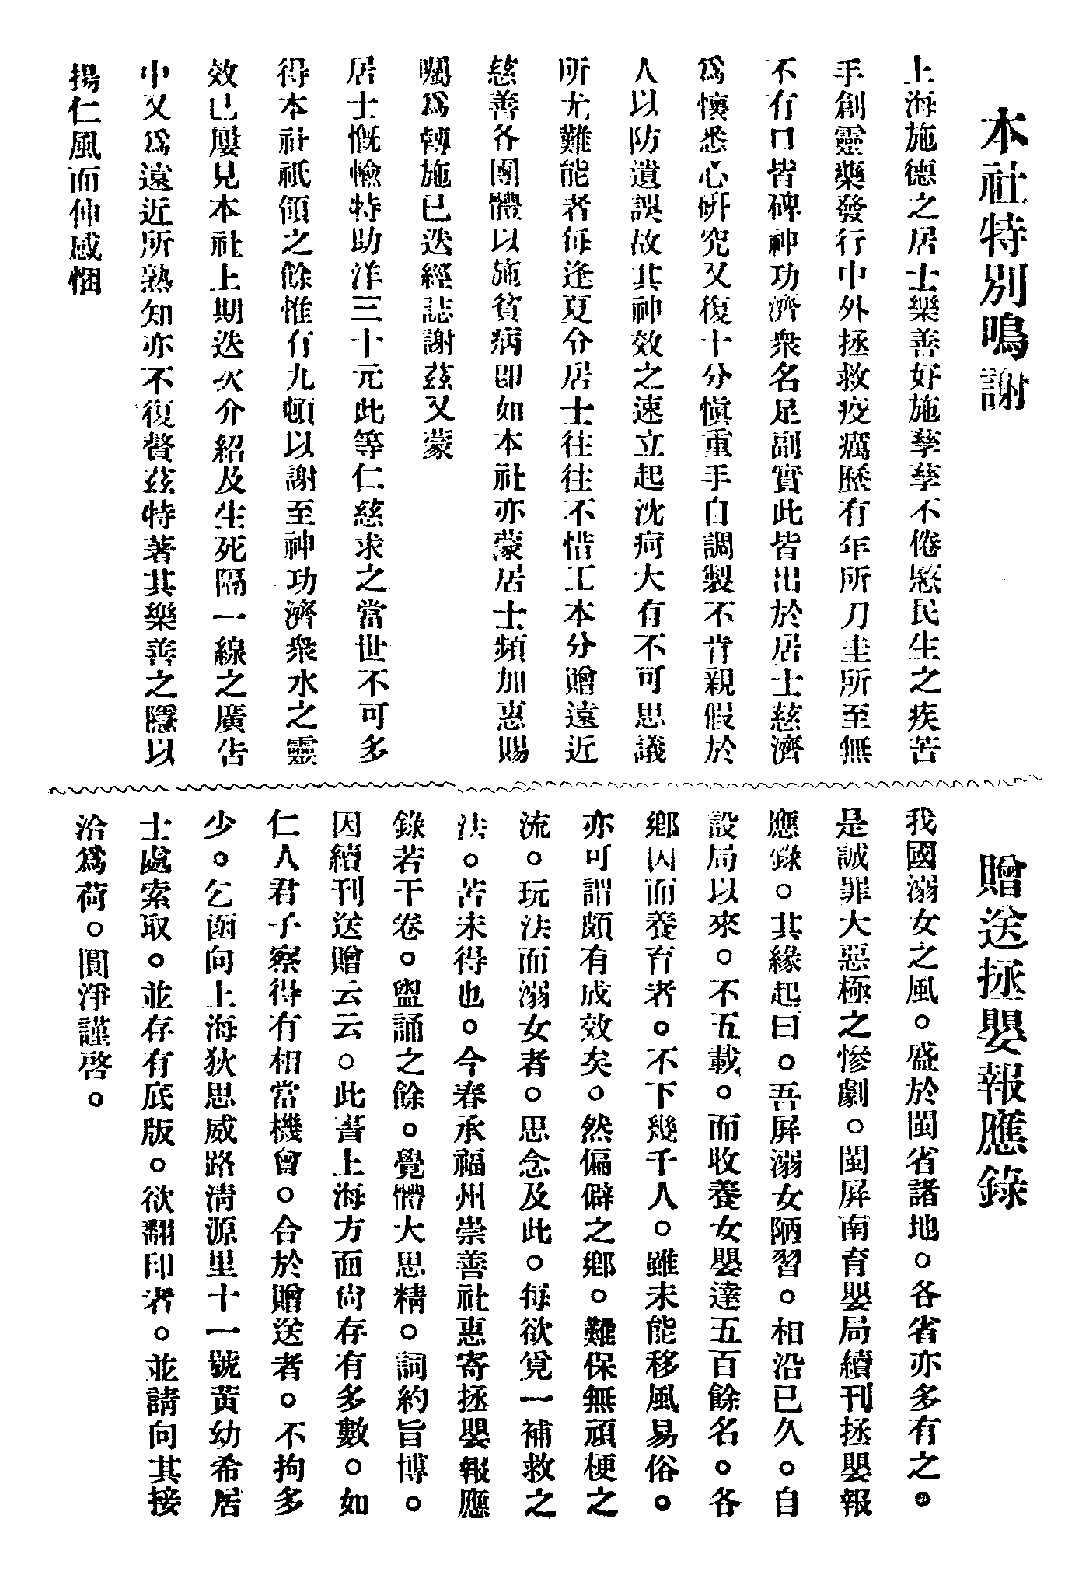 本社特別鳴謝
上海施德之居士樂善好施孳孳不倦愍民生之疾苦
手創靈藥發行中外拯救疫癘歷有年所刀圭所至無
不有口皆碑神功濟衆名足副實此皆出於居士慈濟
爲懷悉心研究又復十分愼重手自調製不肯親假於
人以防遺誤故其神效之速立起沈疴大有不可思議
所尤難能者每逢夏令居士往往不惜工本分贈遠近
慈善各團體以施貧病卽如本社亦蒙居士頻加惠賜
囑爲轉施已迭經誌謝茲又蒙
居士慨憸特助洋三十元此等仁慈求之當世不可多
得本社祇領之餘惟有九頓以謝至神功濟衆水之靈
效已屢見本社上期迭次介紹及生死隔一線之廣告
中又爲遠近所熟知亦不復贅茲特著其樂善之隱以
揚仁風而伸感悃
贈送拯嬰報應錄
我國溺女之風。盛於閩省諸地。各省亦多有之。
是誠罪大惡極之慘劇。閩屏南育嬰局續刊拯嬰報
應錄。其緣起曰。吾屏溺女陋習。相沿已久。自
設局以來。不五載。而收養女嬰達五百餘名。各
鄉因而養育者。不下幾千人。雖未能移風易俗。
亦可謂頗有成效矣。然偏僻之鄉。難保無頑梗之
流。玩法而溺女者。思念及此。每欲覓一補救之
法。苦未得也。今春承福州崇善社惠寄拯嬰報應
錄若干卷。盥誦之餘。覺體大思精。詞約旨博。
因續刊送贈云云。此書上海方面尙存有多數。如
仁人君子察得有相當機會。合於贈送者。不拘多
少。乞函向上海狄思威路淸源里十一號黃幼希居
士處索取。並存有底版。欲翻印者。並請向其接
洽爲荷。圓淨謹啓。